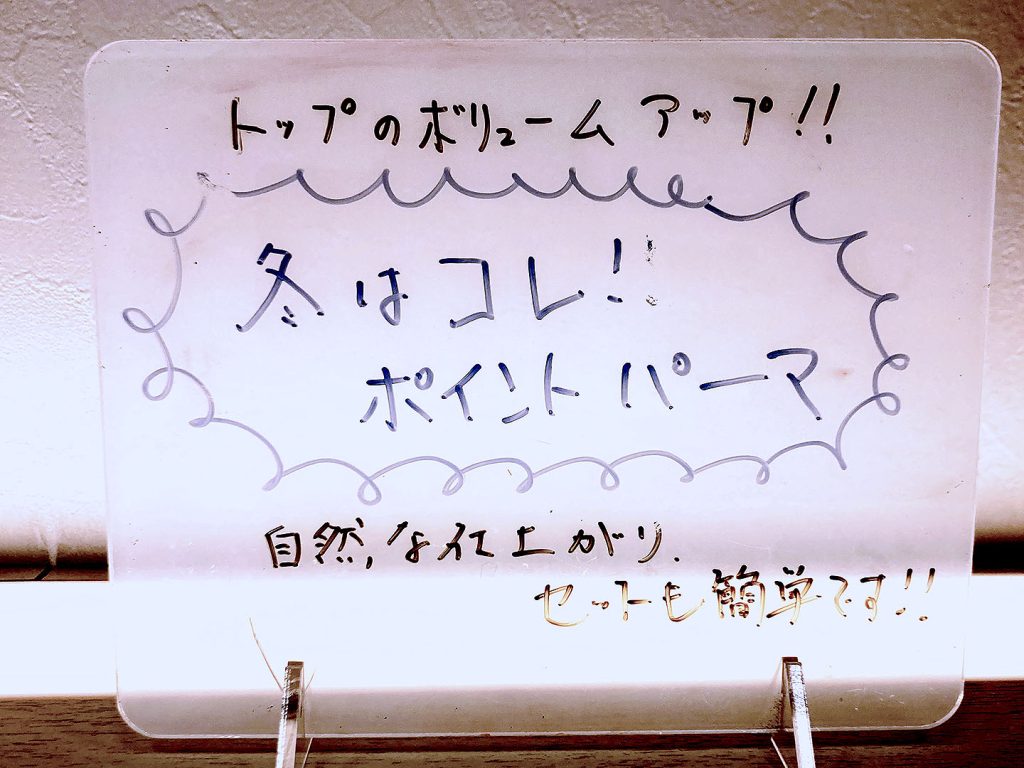 トップのボリュームアップ!!
冬はコレ!
ポイントパーマ
自然な仕上がり.
セットも簡単です!!